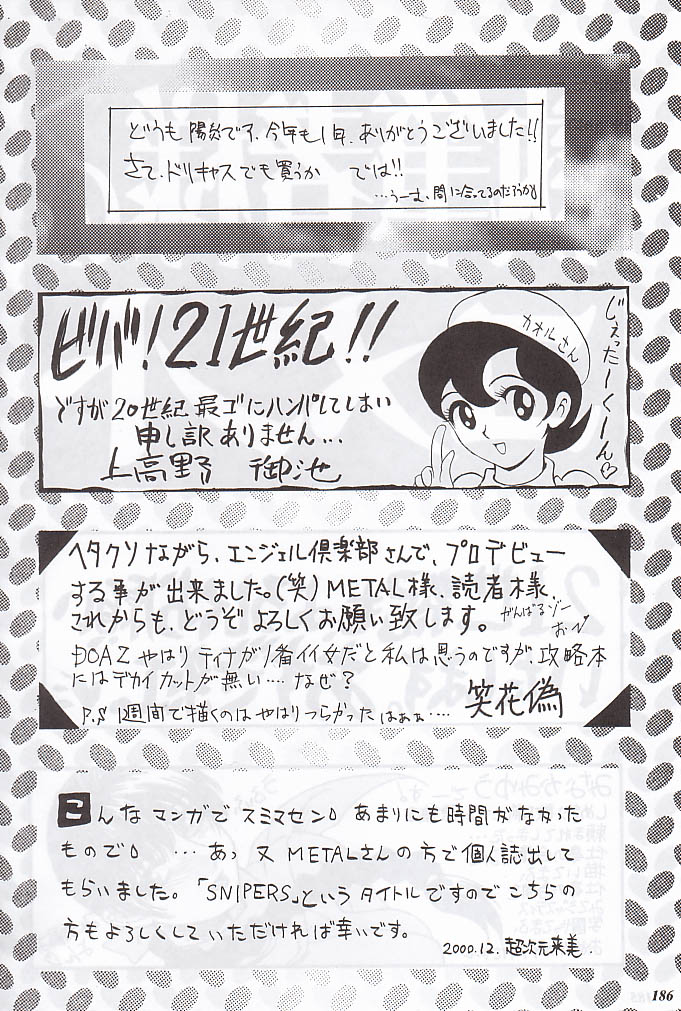 どうも陽炎です、今年も1年、ありがとうございました!!
さて、ドリキャスでも買うか　では!!
…うーむ、間に合ってるのだろうか
ビバ!21世紀!!
ですが20世紀最ゴにハンパしてしまい
申し訳ありません...
上高野　御池
カオルさん
じぇったーくーん♡
ヘタクソながら、エンジェル倶楽部さんで、プロデビュー
する事が出来ました。(笑)METAL様、読者様、
これからも、どうぞよろしくお願い致します。がんばるゾー
おー
DOA2やはりティナが1番イイ女だと私は思うのですが、攻略本
にはデカイカットが無い….なぜ？
P.S 1週間で描くのはやはりつらかったはぁぁ….
笑花偽
こんなマンガでスミマセン。あまりにも時間がなかった
もので。…あっ又METALさんの方で個人誌出して
もらいました。「SNIPERS」というタイトルですのでこちらの
方もよろしくしていただければ幸いです。
2000.12.超次元来美.
186